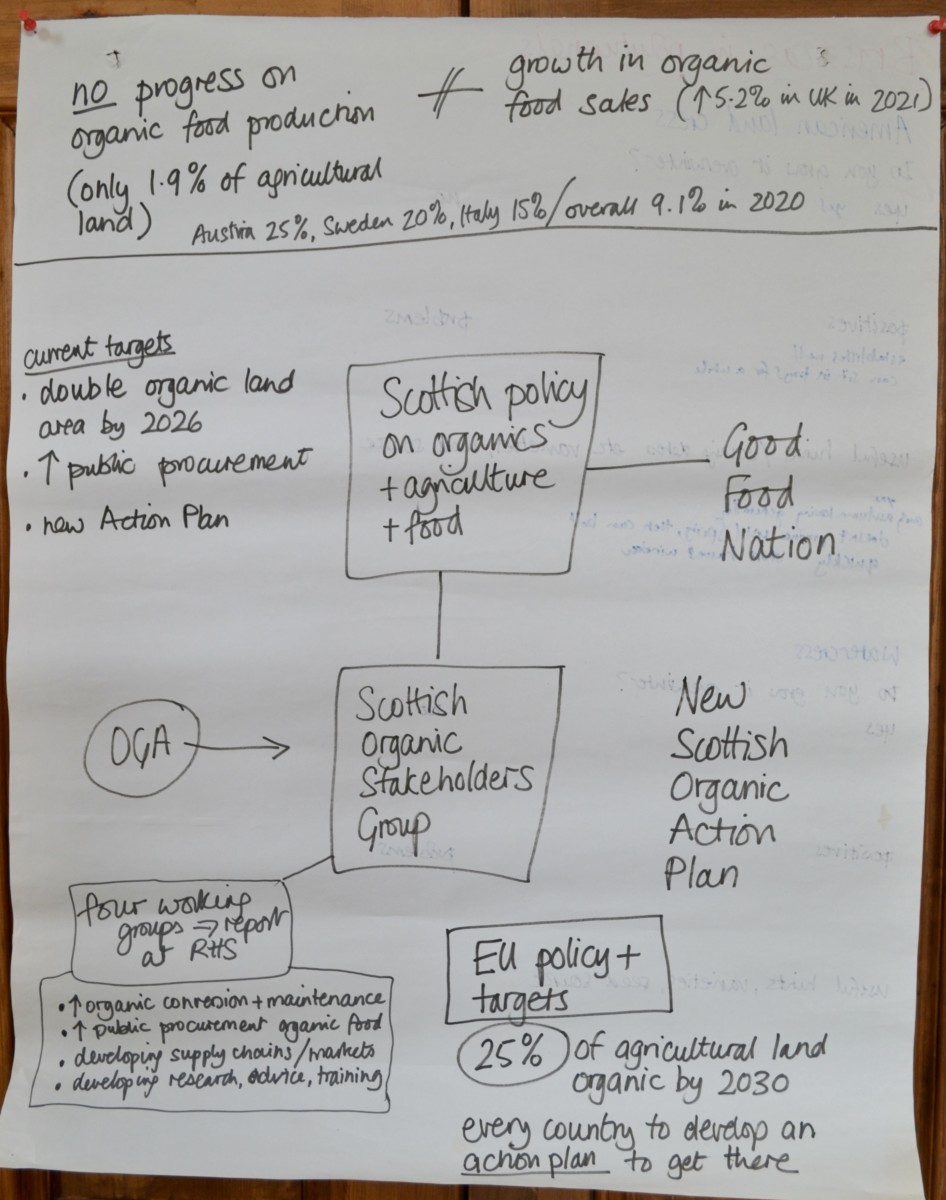 no progress on
organic food production
(only 1.9% of agricultural
land)
≠
growth in organic
food sales (↑5.2% in UK in 2021)
Austria 25%, Sweden 20%, Italy 15% / overall 9.1% in 2020
current targets
• double organic land
area by 2026
• ↑ public procurement
• new Action Plan
Scottish policy
on organics
+ agriculture
+ food
Good
Food
Nation
OGA
Scottish
Organic
Stakeholders
Group
New
Scottish
Organic
Action
Plan
four working
groups → report
at RHS
• ↑ organic conversion + maintenance
• ↑ public procurement organic food
• developing supply chains/markets
• developing research, advice, training
EU policy +
targets
25% of agricultural land
organic by 2030
every country to develop an
action plan to get there